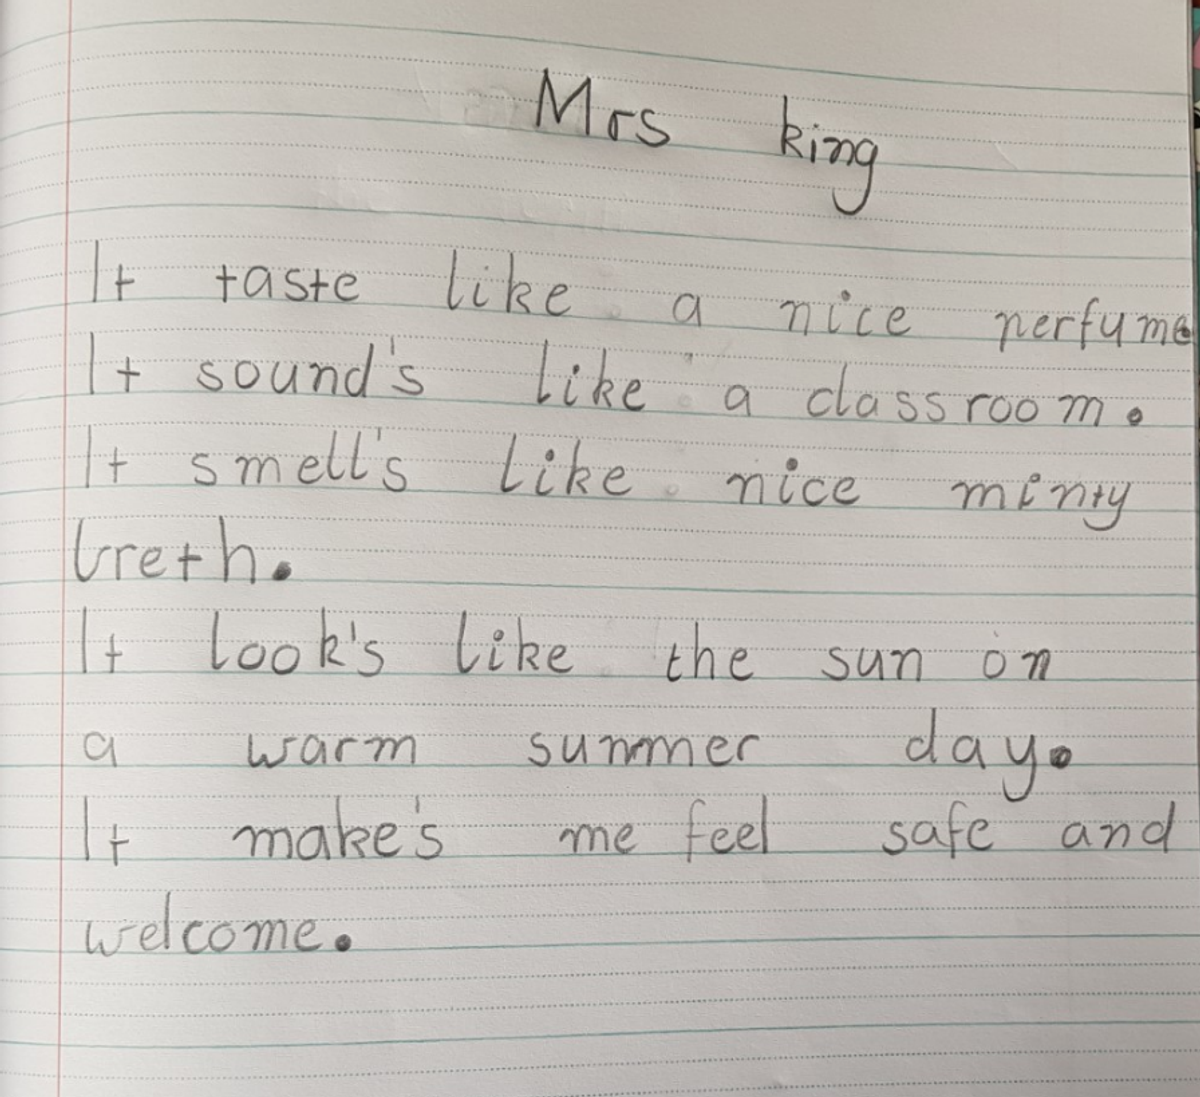 Mrs king
It taste like a nice perfume
It sound's like a classroom.
It smell's like nice minty
breth.
It look's like the sun on
a warm summer day.
It make's me feel safe and
welcome.